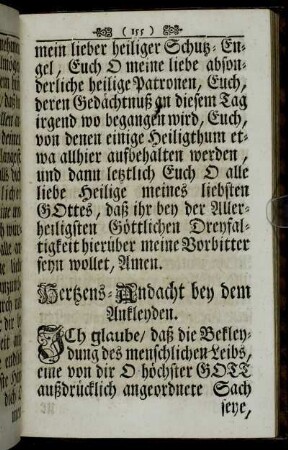 ( 155 )
mein lieber heiliger Schutz-En-
gel, Euch O meine liebe abson-
derliche heilige Patronen, Euch,
deren Gedächtnuß an diesem Tag
irgend wo begangen wird, Euch,
von denen einige Heiligthum et-
wa allhier aufbehalten werden,
und dann letztlich Euch O alle
liebe Heilige meines liebsten
GOttes, daß ihr bey der Aller-
heiligsten Göttlichen Dreyfal-
tigkeit hierüber meine Vorbitter
seyn wollet, Amen.
Hertzens-Andacht bey dem
Ankleyden.
ICh glaube/ daß die Bekley-
dung des menschlichen Leibs,
eine von dir O höchster GOTT
außdrücklich angeordnete Sach
seye,